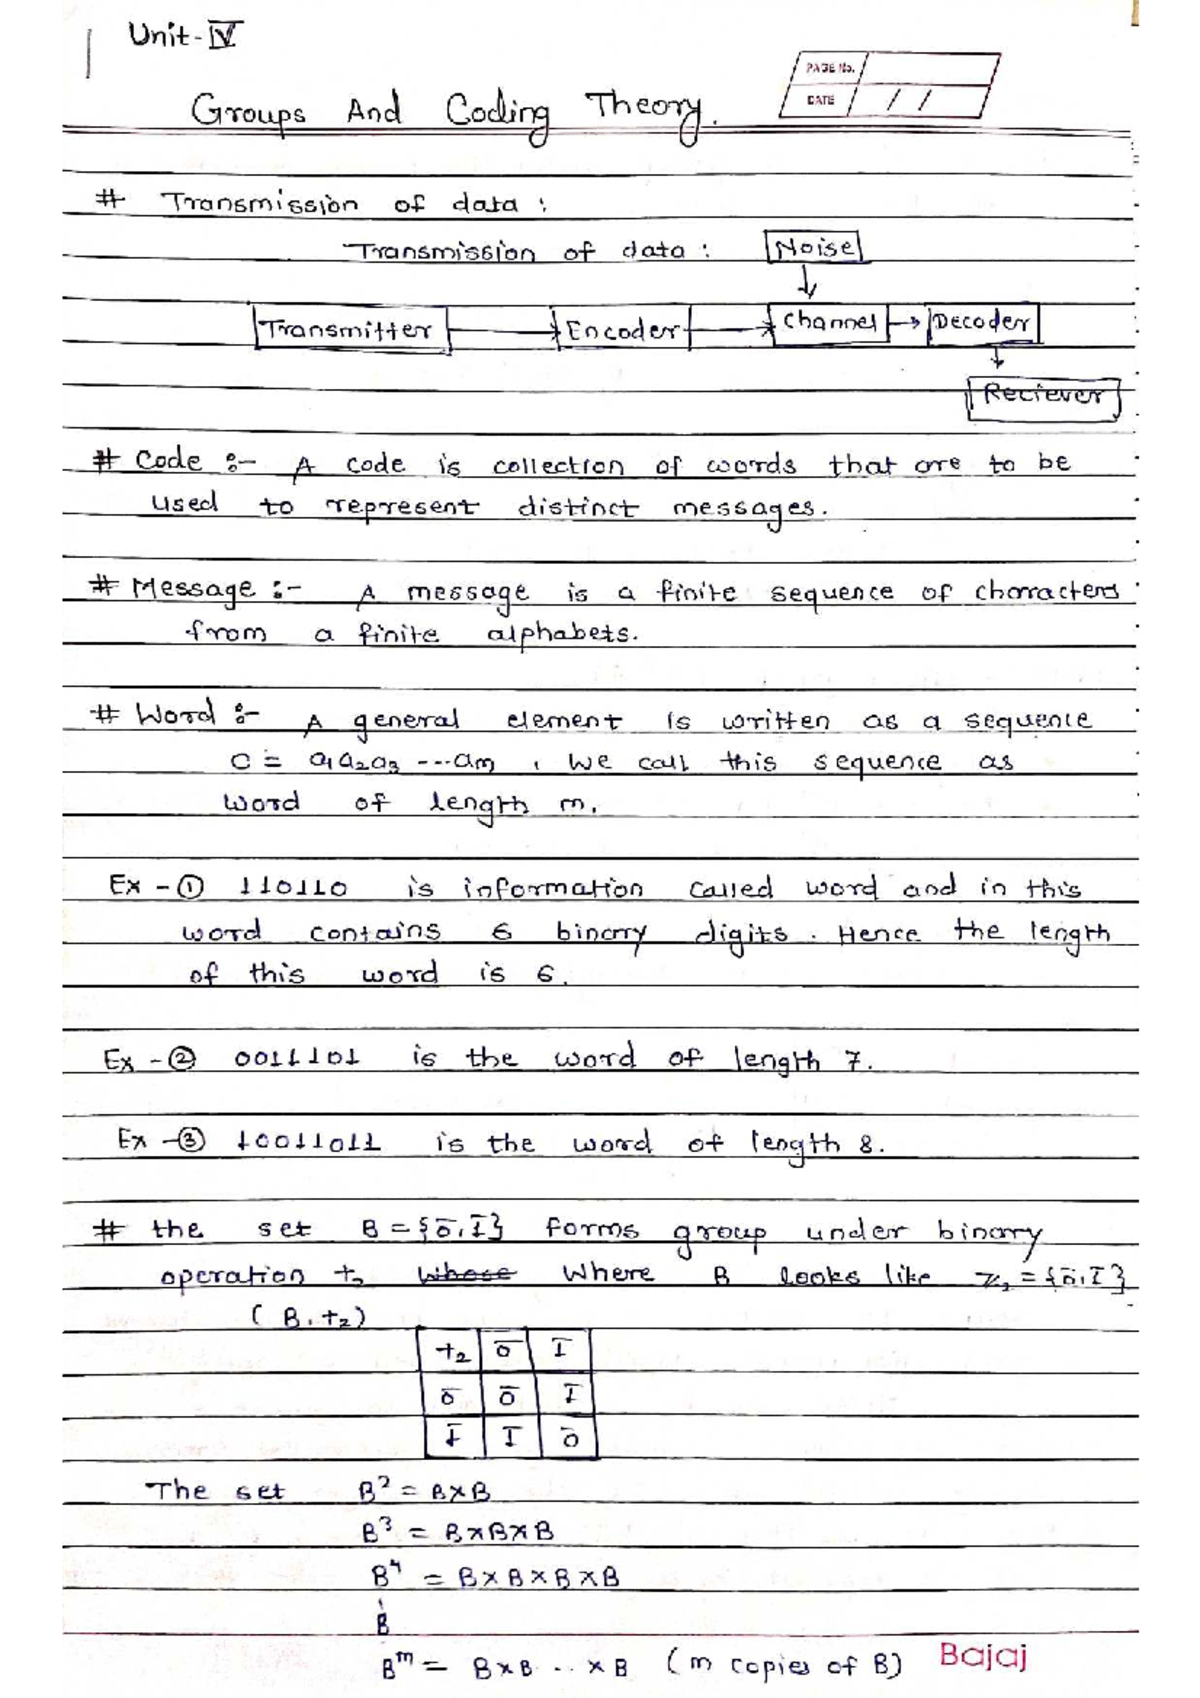 Unit-IV
PAGE No.
DATE / /
Groups And Coding Theory.
# Transmission of data :
Transmission of data : Noise
Transmitter Encoder Channel Decoder
Reciever
# Code :- A code is collection of words that are to be
used to represent distinct messages.
# Message :- A message is a finite sequence of characters
from a finite alphabets.
# Word :- A general element is written as a sequence
c = a1a2a3 ---am , we call this sequence as
word of length m.
Ex - ① 110110 is information called word and in this
word contains 6 binary digits. Hence the length
of this word is 6.
Ex - ② 0011101 is the word of length 7.
Ex - ③ 10011011 is the word of length 8.
# the set B = {0̄, 1̄} forms group under binary
operation +₂ whose where B looks like Z₂ = {0̄, 1̄}
(B, +₂)
+₂ 0̄ 1̄
0̄ 0̄ 1̄
1̄ 1̄ 0̄
The set B² = B×B
B³ = B×B×B
B⁴ = B×B×B×B
B
Bᵐ = B×B .. ×B (m copies of B)
Bajaj